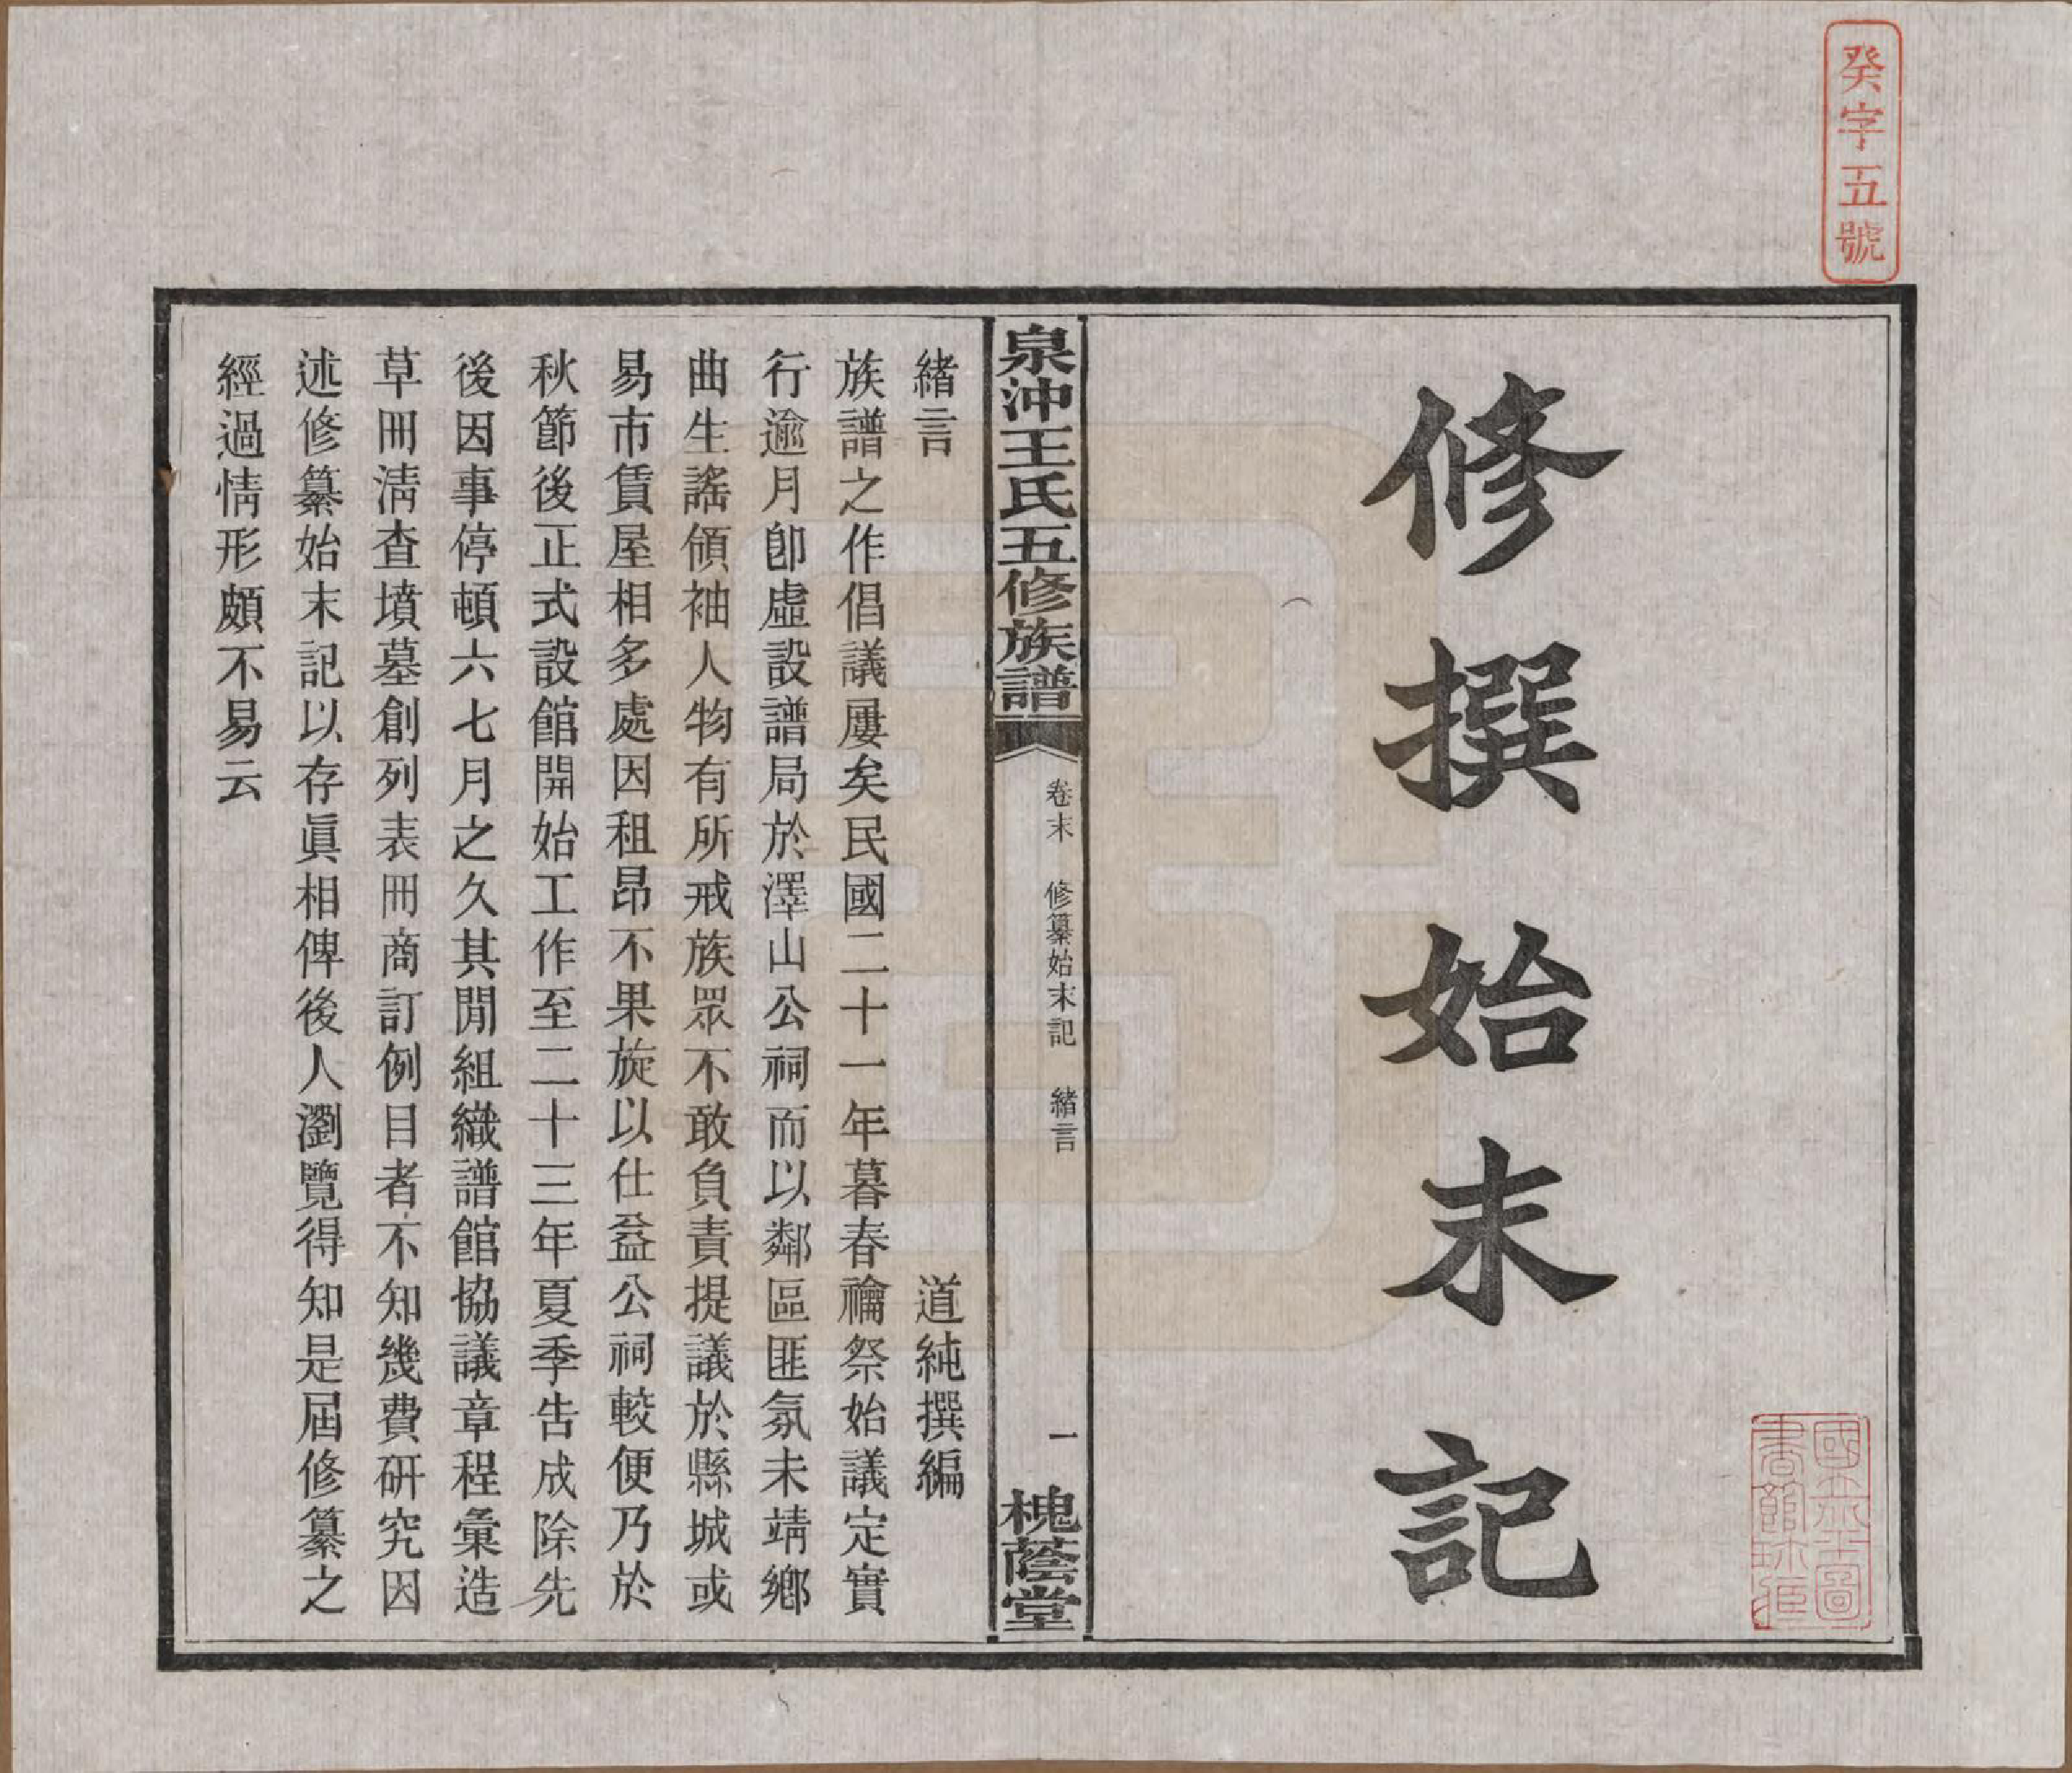 癸字五號
修撰始末記
國立北平圖
書館珍藏
泉沖王氏五修族譜
卷末 修纂始末記 緒言
一
槐蔭堂
緒言 道純撰編
族譜之作倡議屢矣民國二十一年暮春禴祭始議定實
行逾月卽虛設譜局於澤山公祠而以鄰區匪氛未靖鄉
曲生謠領袖人物有所戒族眾不敢負責提議於縣城或
易市賃屋相多處因租昂不果旋以仕益公祠較便乃於
秋節後正式設館開始工作至二十三年夏季告成除先
後因事停頓六七月之久其閒組織譜館協議章程彙造
草冊淸查墳墓創列表冊商訂例目者不知幾費研究因
述修纂始末記以存眞相俾後人瀏覽得知是屆修纂之
經過情形頗不易云